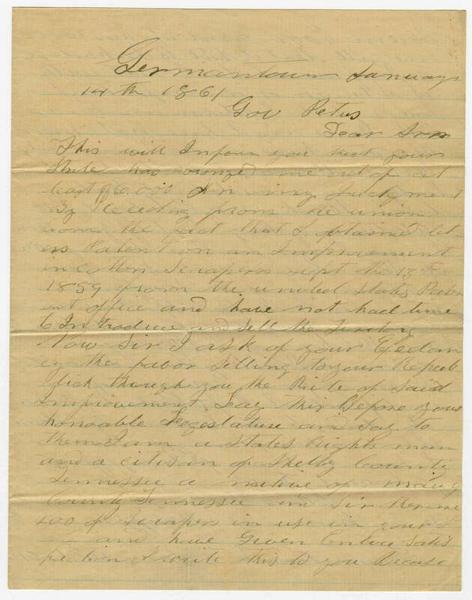 Germantown January
14th 1861
Gov Petus
Dear Sir
This will Inform you that your
State has wronged me out of at
least in my Judgment
By Seceding from the union
from the fact that I obtained let
ers Patent on an Improvement
in cotton Scrapers sept the 13th
1859 from the united States Pat
ent office and have not had time
to Introduce and sell the Teritory
Now Sir I ask of your Exelan
cy the favor Selling to your Repub
lick through you the Rite of Said
Improvement Lay this Before your
honorable Legeslature and Say to
them I am a States Rights man
and a citisin of Shelby County
Tennessee a native of Maury
County Tennessee Sir
500 of Scrapers in use in your
and have Given Entire Satis
faction I write this to you Because